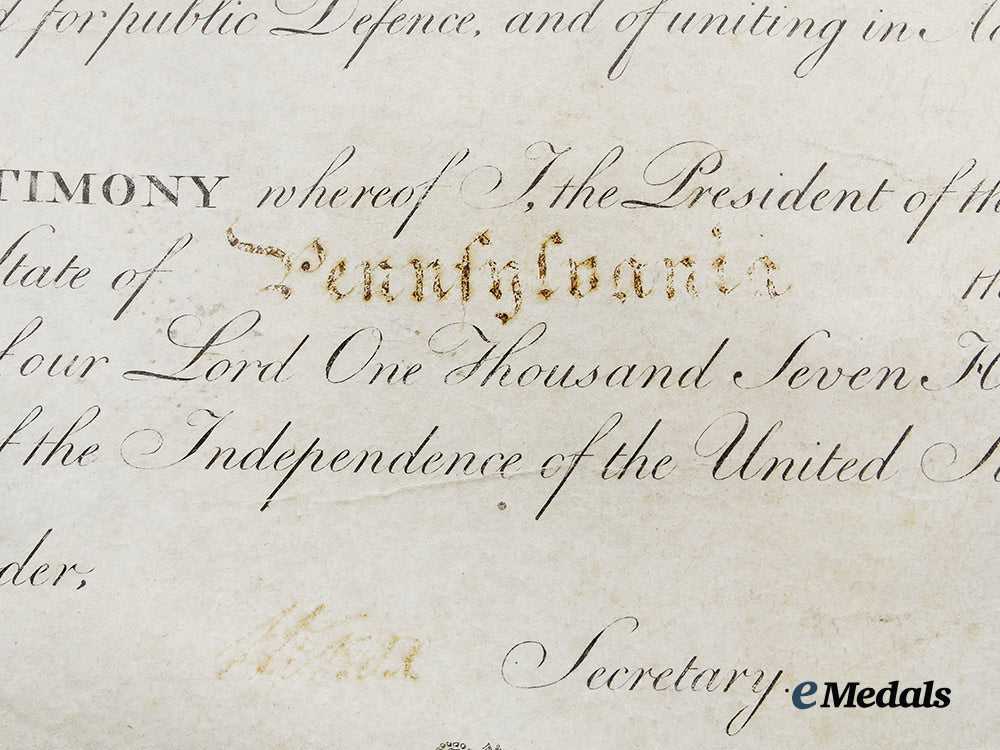 for public Defence, and of uniting in
TIMONY whereof I, the President of the
State of Pennsylvania th
our Lord One Thousand Seven H
f the Independence of the United St
der,
Secretary.
eMedals